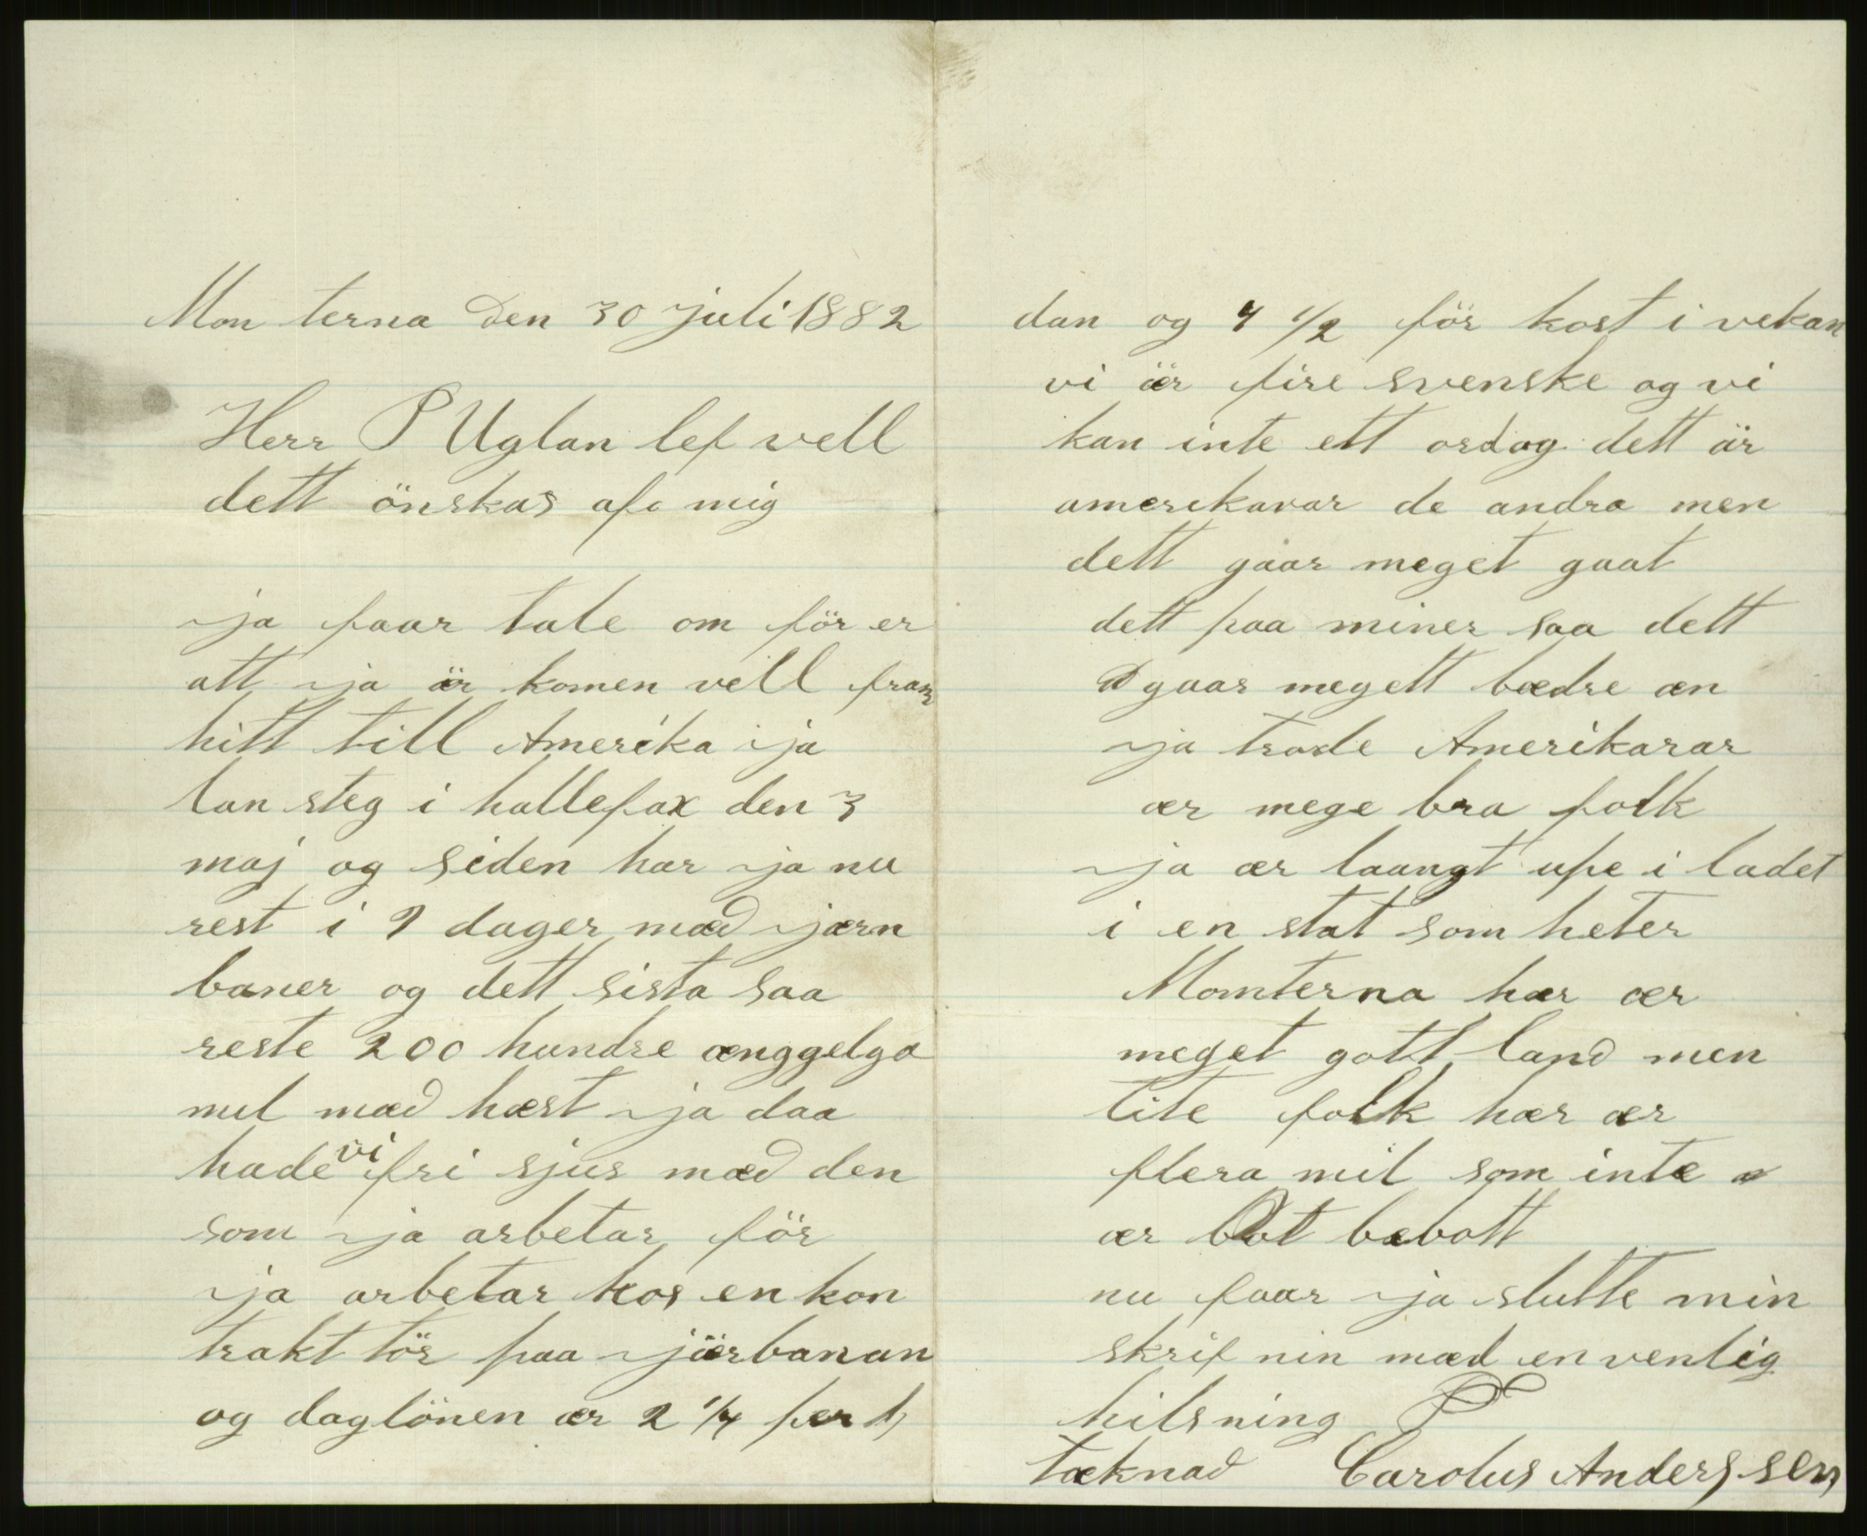 Mon terna den 30 juli 1882
Herr P Uglan lef vell
dett önskas af mig
ja faar tale om för er
att ja är komen vell fram
hitt till Amerika ja
lan steg i hallefax den 3
maj og siden har ja nu
rest i 9 dager mæd jærn
baner og dett sista saa
reste 200 hundre ænggelga
mil mæd hæst ja daa
hade vi fri sjus mæd den
som ja arbetar för
ja arbetar hos en kon
trakt tör paa järbanan
og daglönen ær 2 1/4 per
dan og 4 1/2 för kost i vekan
vi är fire svenske og vi
kan inte ett ord og dett är
amerikarar de andra men
dett gaar meget gaat
dett paa miner saa dett
gaar megett bædre æn
ja trode Amerikarar
ær mege bra folk
ja ær laangt upe i ladet
i en stat som heter
Momterna hær ær
meget gott land men
lite folk hær ær
flera mil som inte
ær bot bebott
nu faar ja slutte min
skrif nin mæd en venlig
hilsning
tæknad Carolus Anderssen